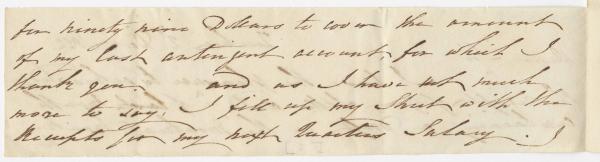 for ninety nine Dollars to cover the amount
of my last contingent account for which I
thank you. and as I have not much
more to say, I fill up my Sheet with the
Receipts for my next Quarters Salary. I